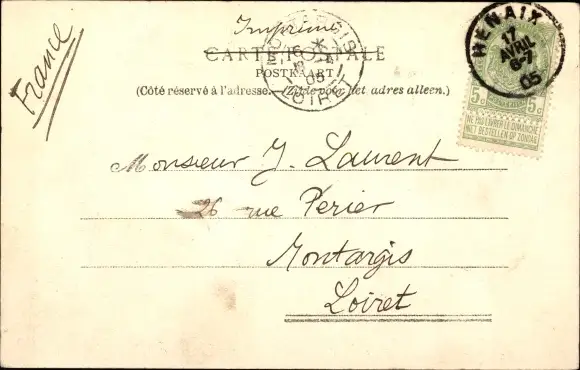 France
Imprimé
CARTE POSTALE
POSTKAART
(Côté réservé à l'adresse.—(Zijde voor het adres alleen.)
Monsieur J. Laurent
26 rue Périer
Montargis
Loiret
MONTARGIS
05
LOIRET
RENAIX
17
AVRIL
6-7
05
5c 5c
NE PAS LIVRER LE DIMANCHE
NIET BESTELLEN OP ZONDAG